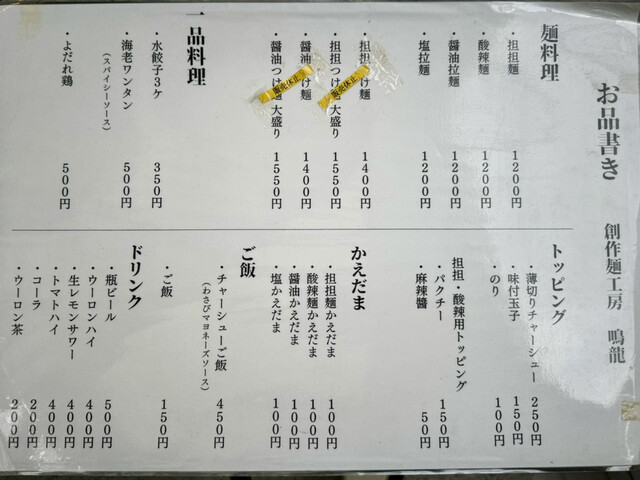 お品書き 創作麺工房 鳴龍
麺料理
・担担麺 1200円
・酸辣麺 1200円
・醤油拉麺 1200円
・塩拉麺 1200円
・担担つけ麺 1400円
・担担つけ麺 大盛り 1550円
・醤油つけ麺 1400円
・醤油つけ麺 大盛り 1550円
販売休止
販売休止
一品料理
・水餃子3ケ 350円
・海老ワンタン 500円
(スパイシーソース)
・よだれ鶏 500円
トッピング
・薄切りチャーシュー 250円
・味付玉子 150円
・のり 100円
担担・酸辣用トッピング
・パクチー 150円
・麻辣醤 50円
かえだま
・担担麺かえだま 100円
・酸辣麺かえだま 100円
・醤油かえだま 100円
・塩かえだま 100円
ご飯
・チャーシューご飯 450円
(わさびマヨネーズソース)
・ご飯 150円
ドリンク
・瓶ビール 500円
・ウーロンハイ 400円
・生レモンサワー 400円
・トマトハイ 400円
・コーラ 200円
・ウーロン茶 200円